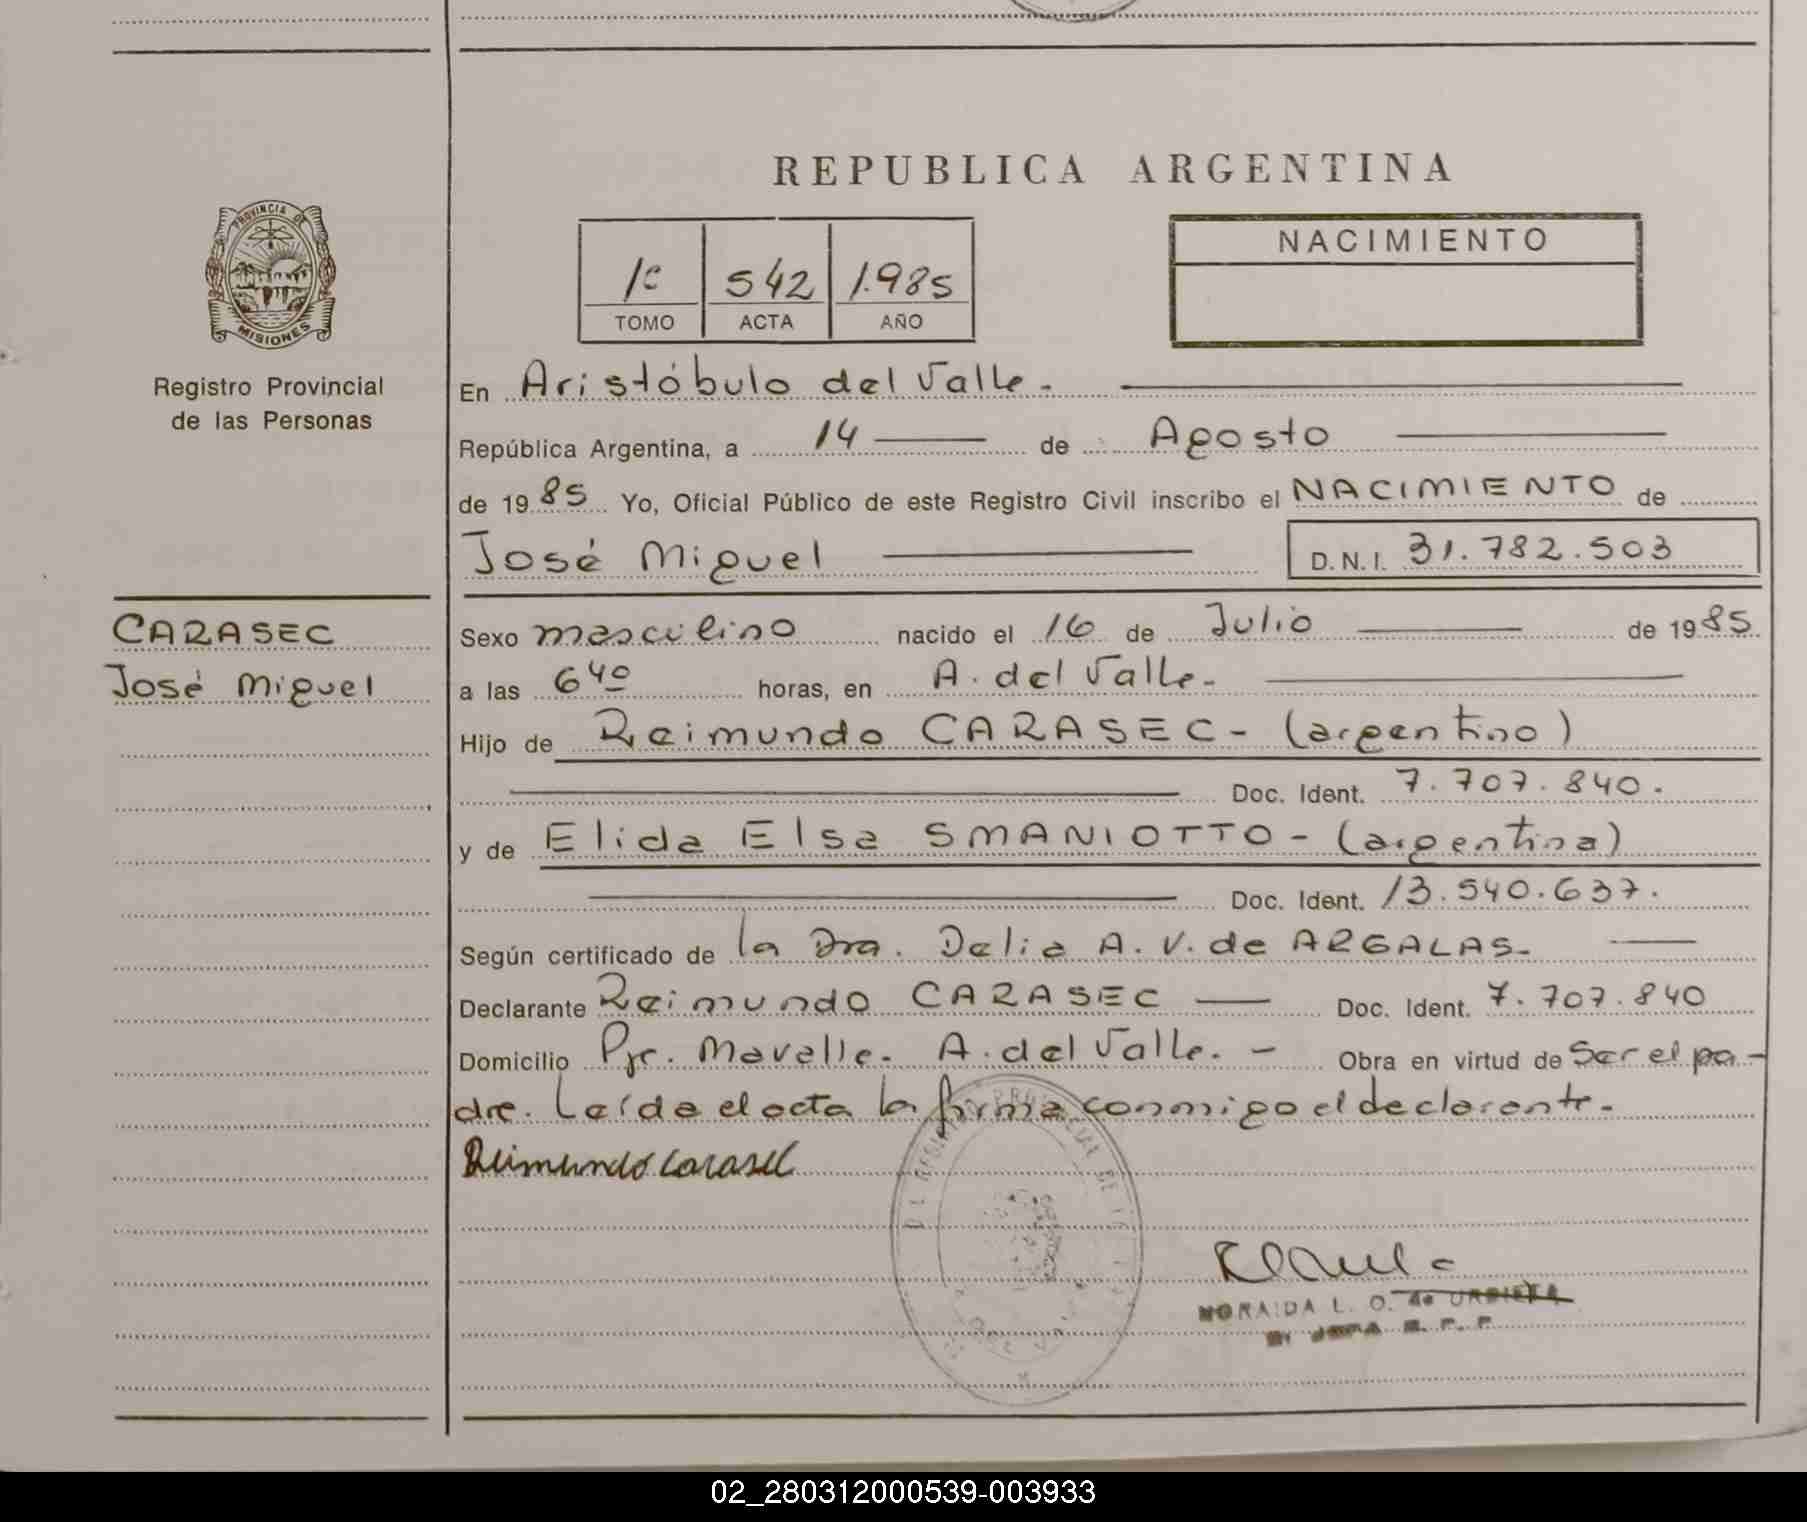 REPUBLICA ARGENTINA
PROVINCIA DE
MISIONES
Registro Provincial
de las Personas
1º 542 1.985
TOMO ACTA AÑO
NACIMIENTO
En Aristóbulo del Valle.
República Argentina, a 14 de Agosto
de 1985 Yo, Oficial Público de este Registro Civil inscribo el NACIMIENTO de
José Miguel D.N.I. 31.782.503
CARASEC
José Miguel
Sexo masculino nacido el 16 de Julio de 1985
a las 6 40 horas, en A. del Valle.
Hijo de Reimundo CARASEC - (argentino)
Doc. Ident. 7.707.840.
y de Elida Elsa SMANIOTTO - (argentina)
Doc. Ident. 13.540.637.
Según certificado de la Dra. Delia A. V. de ARGALAS.
Declarante Reimundo CARASEC Doc. Ident. 7.707.840
Domicilio Pje. Mavalle. A. del Valle. - Obra en virtud de ser el pa-
dre. Leída el acta la firma conmigo el declarante.
Reimundo Carasec
NORAIDA L. O. de URBIETA
02_280312000539-003933